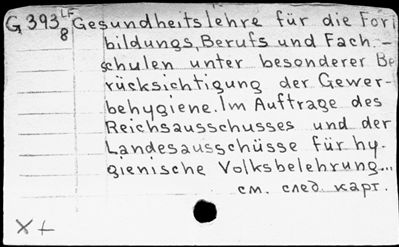 G 393/8 LF Gesundheitslehre für die Fort
bildungs, Berufs und Fach.-
schulen unter besonderer Be
rücksichtigung der Gewer-
behygiene. Im Auftrage des
Reichsausschusses und der
Landesausschüsse für hy-
gienische Volksbelehrung...
см. след. карт.
X +